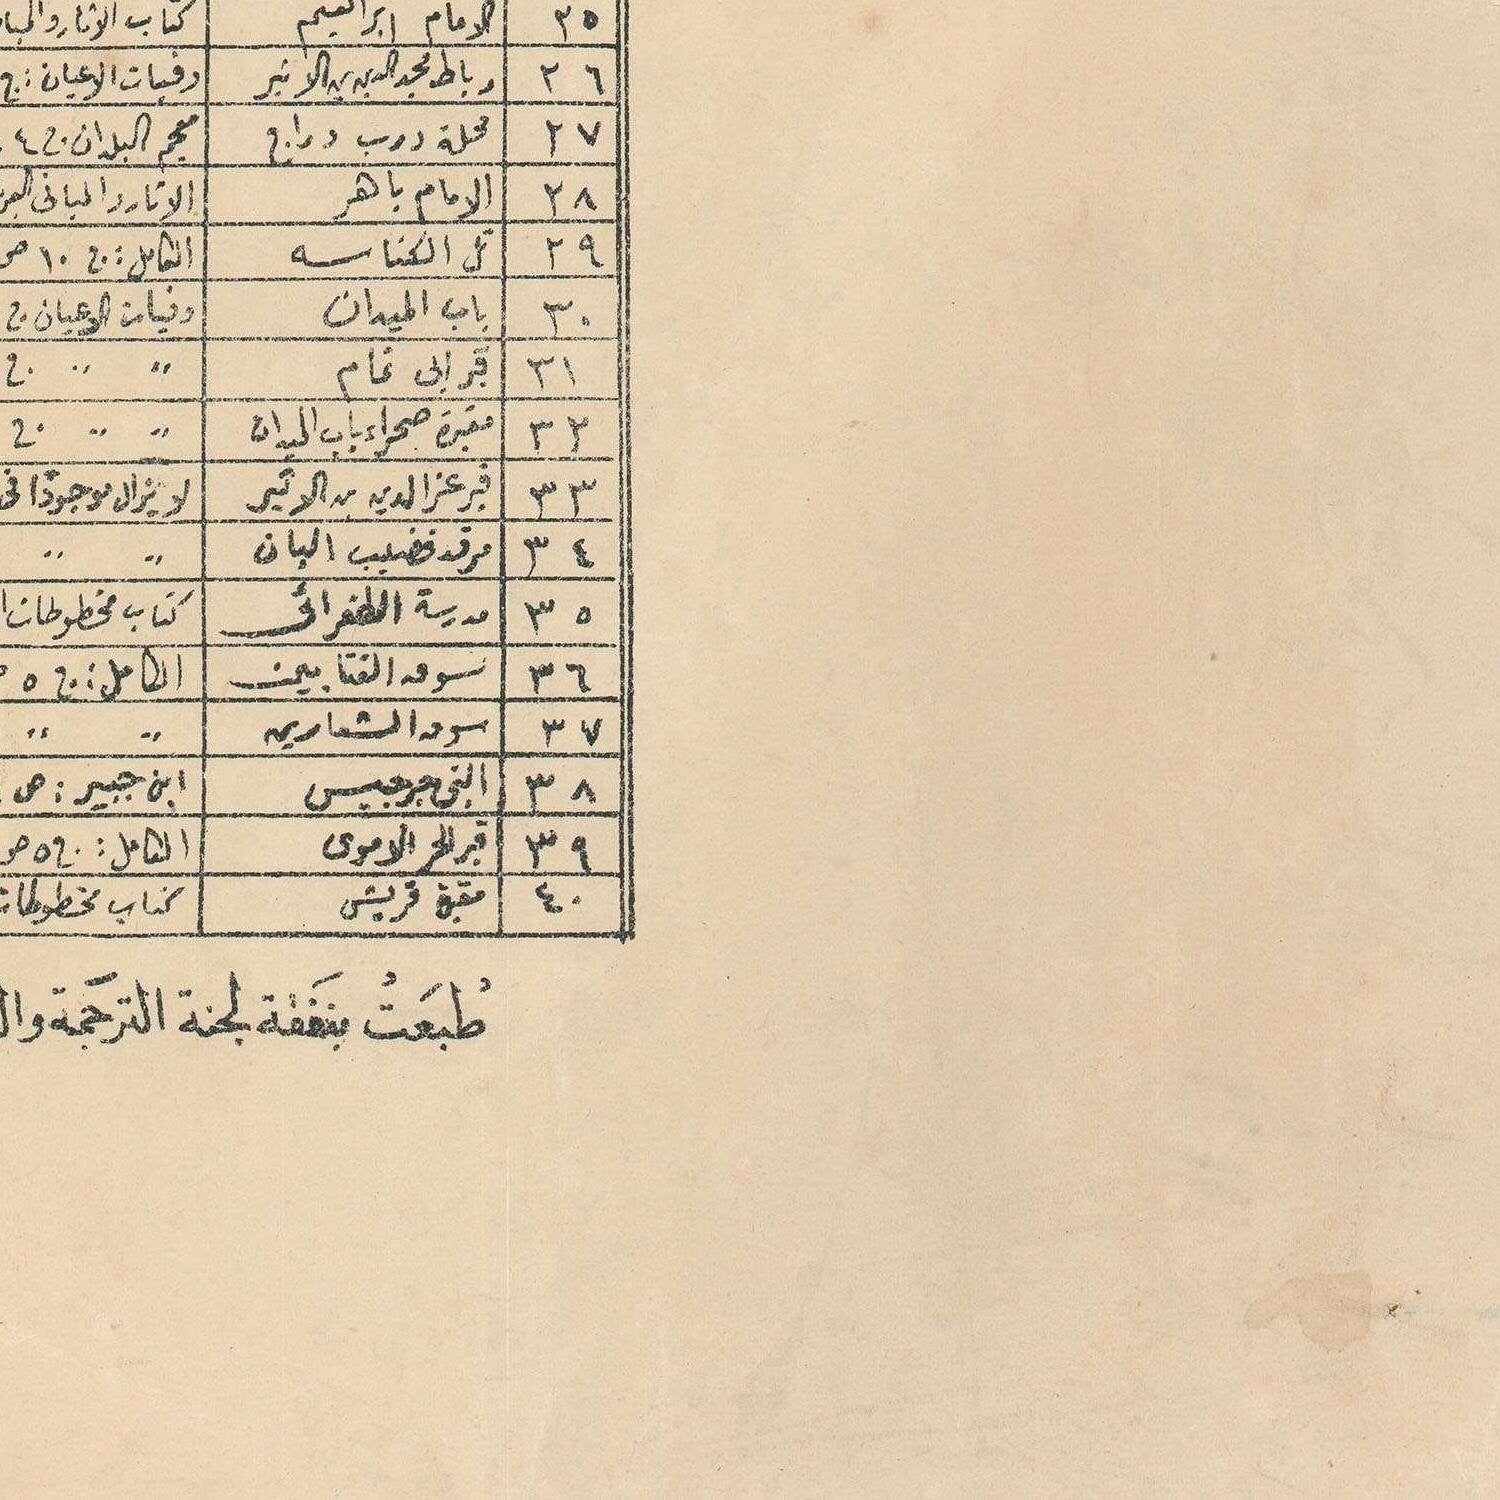 ٢٥ الامام ابراهيم كتاب الآثار والمبا
٢٦ رباط مجد الدين بن الاثير وفيات الاعيان : ج
٢٧ محلة درب دراج معجم البلدان ج ٤
٢٨ الامام باهر الآثار والمباني العر
٢٩ تل الكناسه الكامل : ج ١٠ ص
٣٠ باب الميدان وفيات الاعيان ج
٣١ قبر ابي تمام " " " ج
٣٢ مقبرة صحراء باب الميدان " " " ج
٣٣ قبر عز الدين بن الاثير لا يزال موجودًا في
٣٤ مرقد قضيب البان " "
٣٥ مدرسة الطغرائي كتاب مخطوطات ا
٣٦ سوق القتابين الكامل : ج ٥
٣٧ سوق الشعارين " "
٣٨ النبي جرجيس ابن جبير : ص
٣٩ قبر الحر الاموي الكامل : ج ٥ ص
٤٠ مقبرة قريش كتاب مخطوطات
طُبعَتْ بنَفَقة لجنة الترجَمة وال